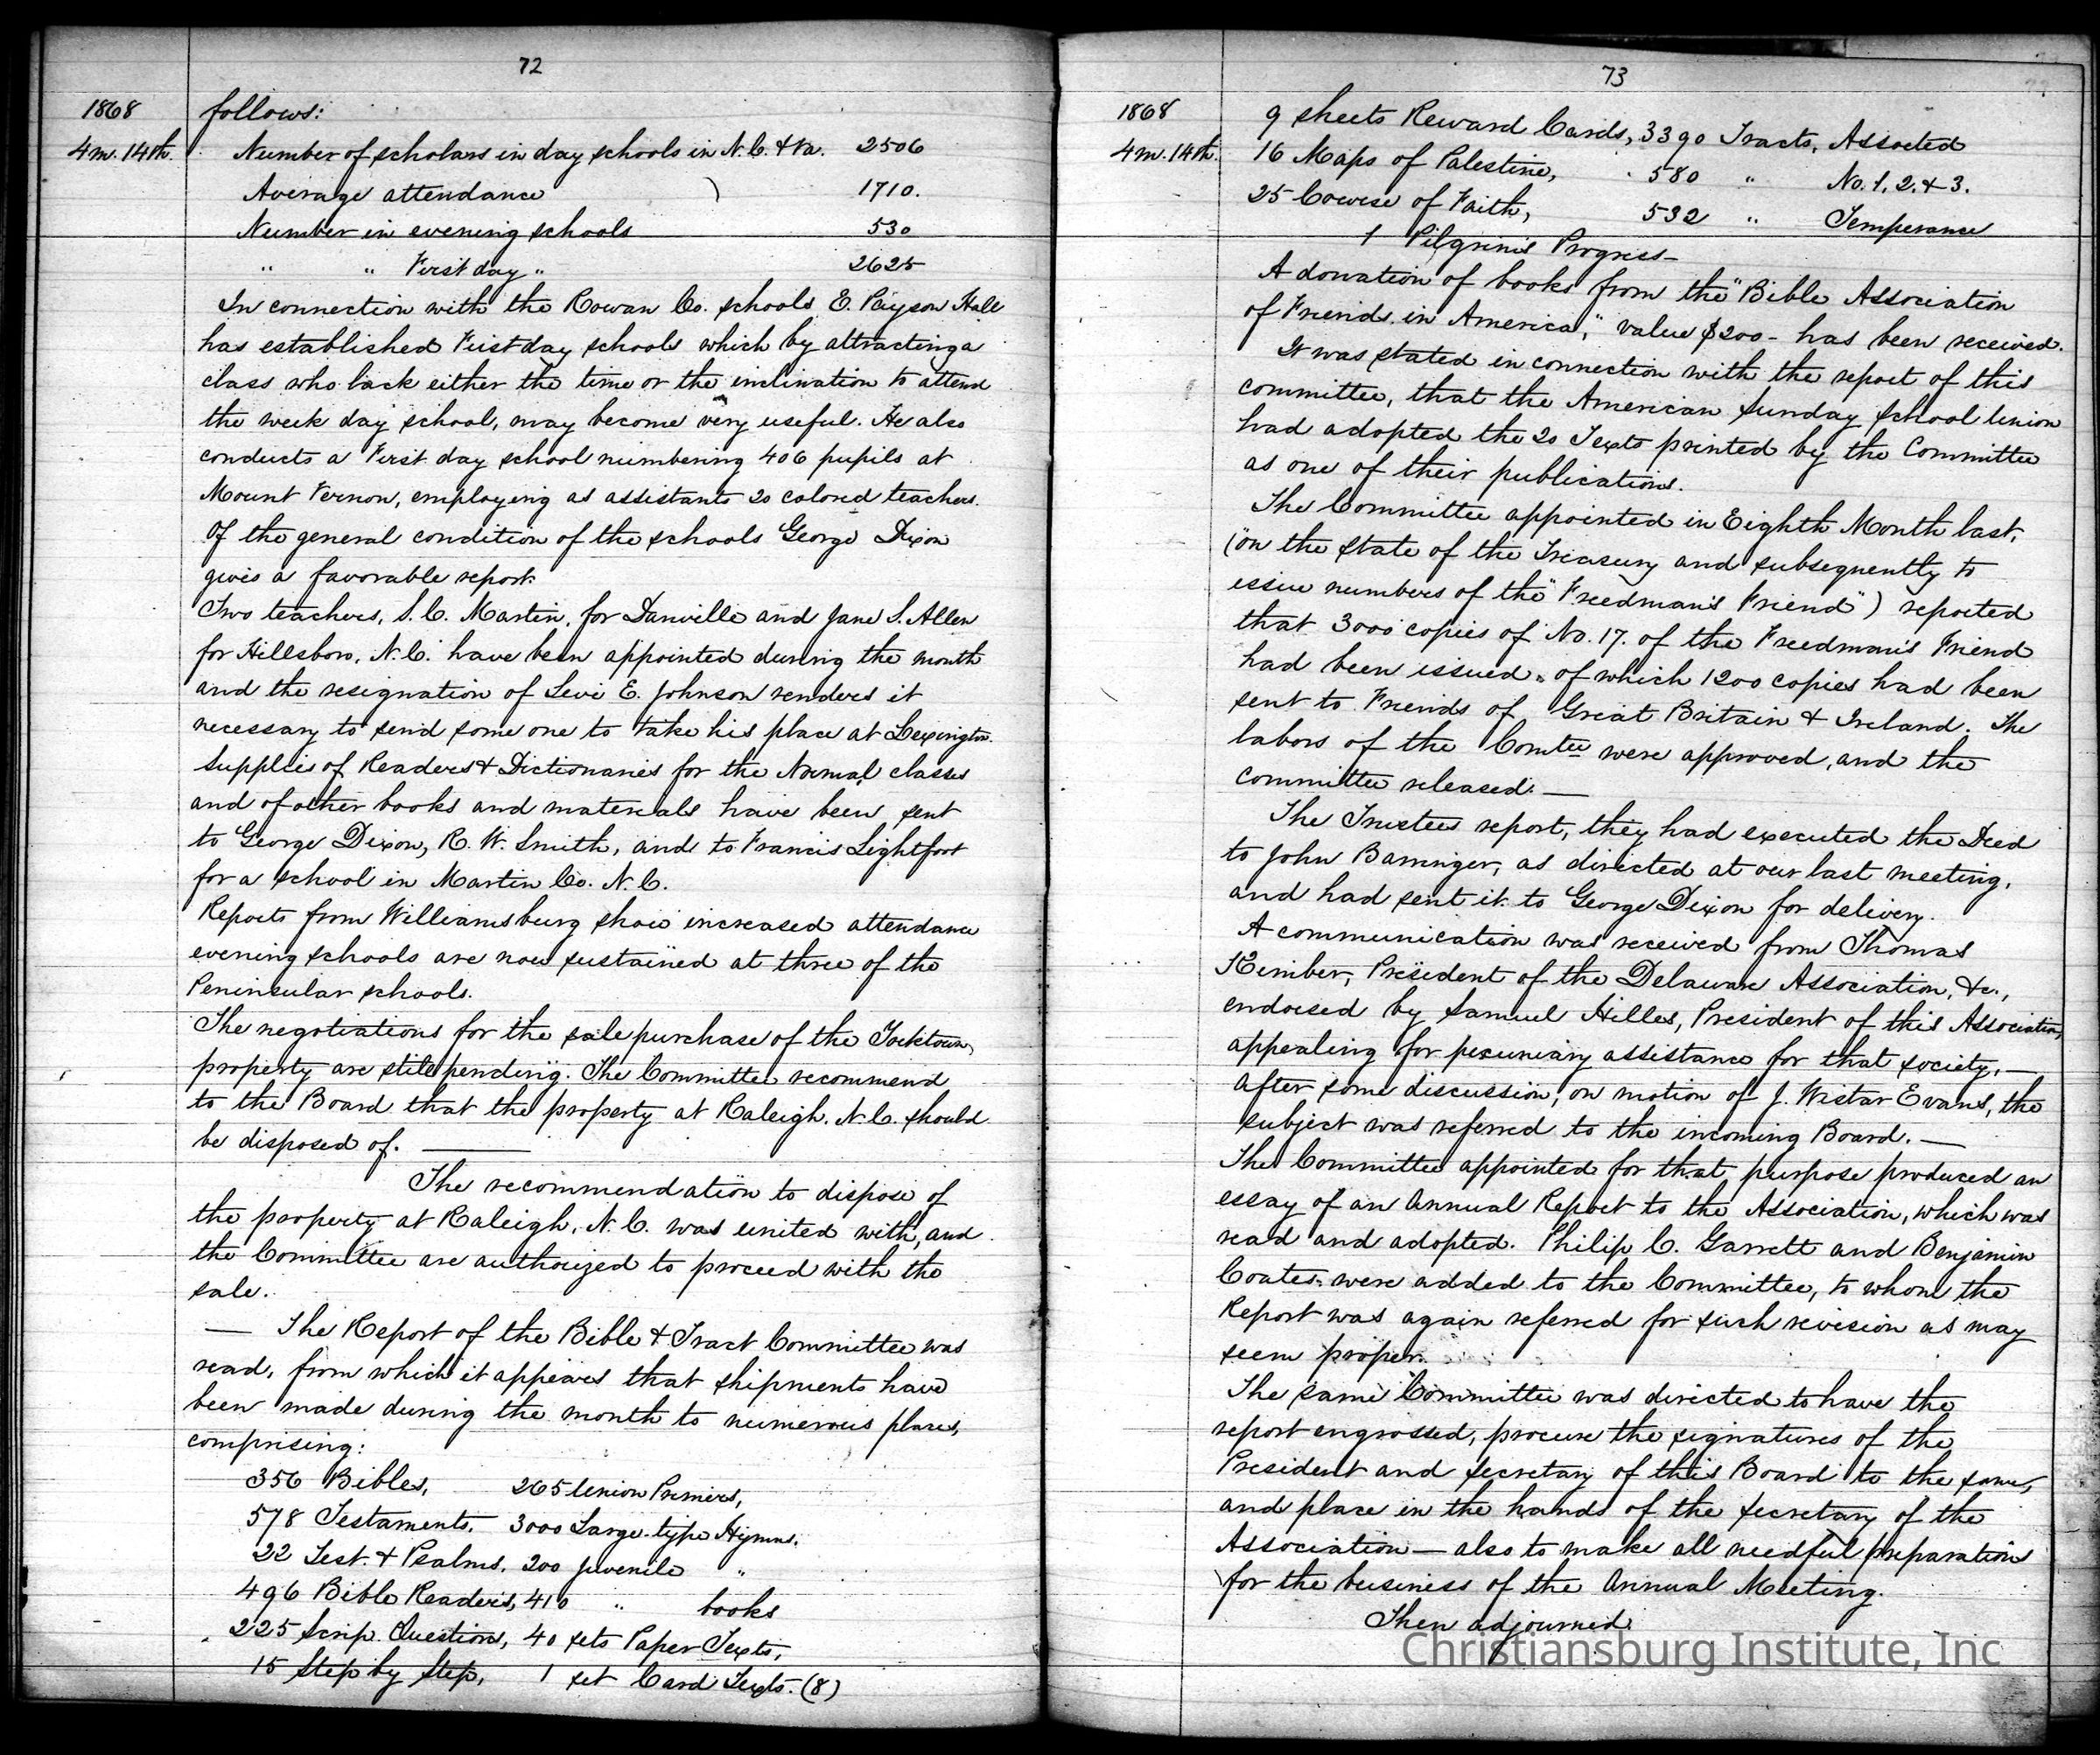 72
1868
4 m. 14th.
follows:
Number of scholars in day schools in N.C. & Va. 2506
Average attendance 1710.
Number in evening schools 530
" " First day " 2625
In connection with the Rowan Co. schools E. Payson Hall
has established First day schools which by attracting a
class who lack either the time or the inclination to attend
the week day school, may become very useful. He also
conducts a First day school numbering 406 pupils at
Mount Vernon, employing as assistants 20 colored teachers.
Of the general condition of the schools George Dixon
gives a favorable report.
Two teachers, S. C. Martin, for Danville and Jane S. Allen
for Hillsboro, N.C. have been appointed during the month
and the resignation of Levi E. Johnson renders it
necessary to send some one to take his place at Lexington.
Supplies of Readers & Dictionaries for the Normal classes
and of other books and materials have been sent
to George Dixon, R. W. Smith, and to Francis Lightfoot
for a school in Martin Co. N.C.
Reports from Williamsburg show increased attendance
evening schools are now sustained at three of the
Peninsular schools.
The negotiations for the sale purchase of the Yorktown
property are still pending. The Committee recommend
to the Board that the property at Raleigh, N.C. should
be disposed of. —
The recommendation to dispose of
the property at Raleigh, N.C. was united with, and
the Committee are authorized to proceed with the
sale.
— The Report of the Bible & Tract Committee was
read, from which it appears that shipments have
been made during the month to numerous places,
comprising:
356 Bibles, 265 Union Primers,
578 Testaments. 3000 Large-type Hymns.
22 Test. & Psalms, 200 Juvenile "
496 Bible Readers, 410 " books
225 Scrip. Questions, 40 sets Paper Texts,
15 Step by Step, 1 set Card Texts. (8)
73
1868
4 m. 14th.
9 sheets Reward Cards, 3390 Tracts, Assorted
16 Maps of Palestine, 580 " No. 1, 2, & 3.
25 Course of Faith, 532 " Temperance
1 Pilgrim's Progress—
A donation of books from the "Bible Association
of Friends in America," value $200- has been received.
It was stated in connection with the report of this
committee, that the American Sunday School Union
had adopted the 20 Texts printed by the Committee
as one of their publications.
The Committee appointed in Eighth Month last,
(on the state of the Treasury and subsequently to
issue numbers of the "Freedman's Friend") reported
that 3000 copies of No. 17. of the Freedman's Friend
had been issued, of which 1200 copies had been
sent to Friends of Great Britain & Ireland. The
labors of the Comtee were approved, and the
committee released. —
The Trustees report, they had executed the Deed
to John Barringer, as directed at our last meeting,
and had sent it to George Dixon for delivery.
A communication was received from Thomas
Kimber, President of the Delaware Association, &c.,
endorsed by Samuel Hilles, President of this Association,
appealing for pecuniary assistance for that society.—
After some discussion, on motion of J. Wistar Evans, the
subject was referred to the incoming Board. —
The Committee appointed for that purpose produced an
essay of an Annual Report to the Association, which was
read and adopted. Philip C. Garrett and Benjamin
Coates were added to the Committee, to whom the
Report was again referred for such revision as may
seem proper.
The same Committee was directed to have the
report engrossed, procure the signatures of the
President and Secretary of this Board to the same,
and place in the hands of the Secretary of the
Association — also to make all needful preparation
for the business of the Annual Meeting.
Then adjourned.
Christiansburg Institute, Inc